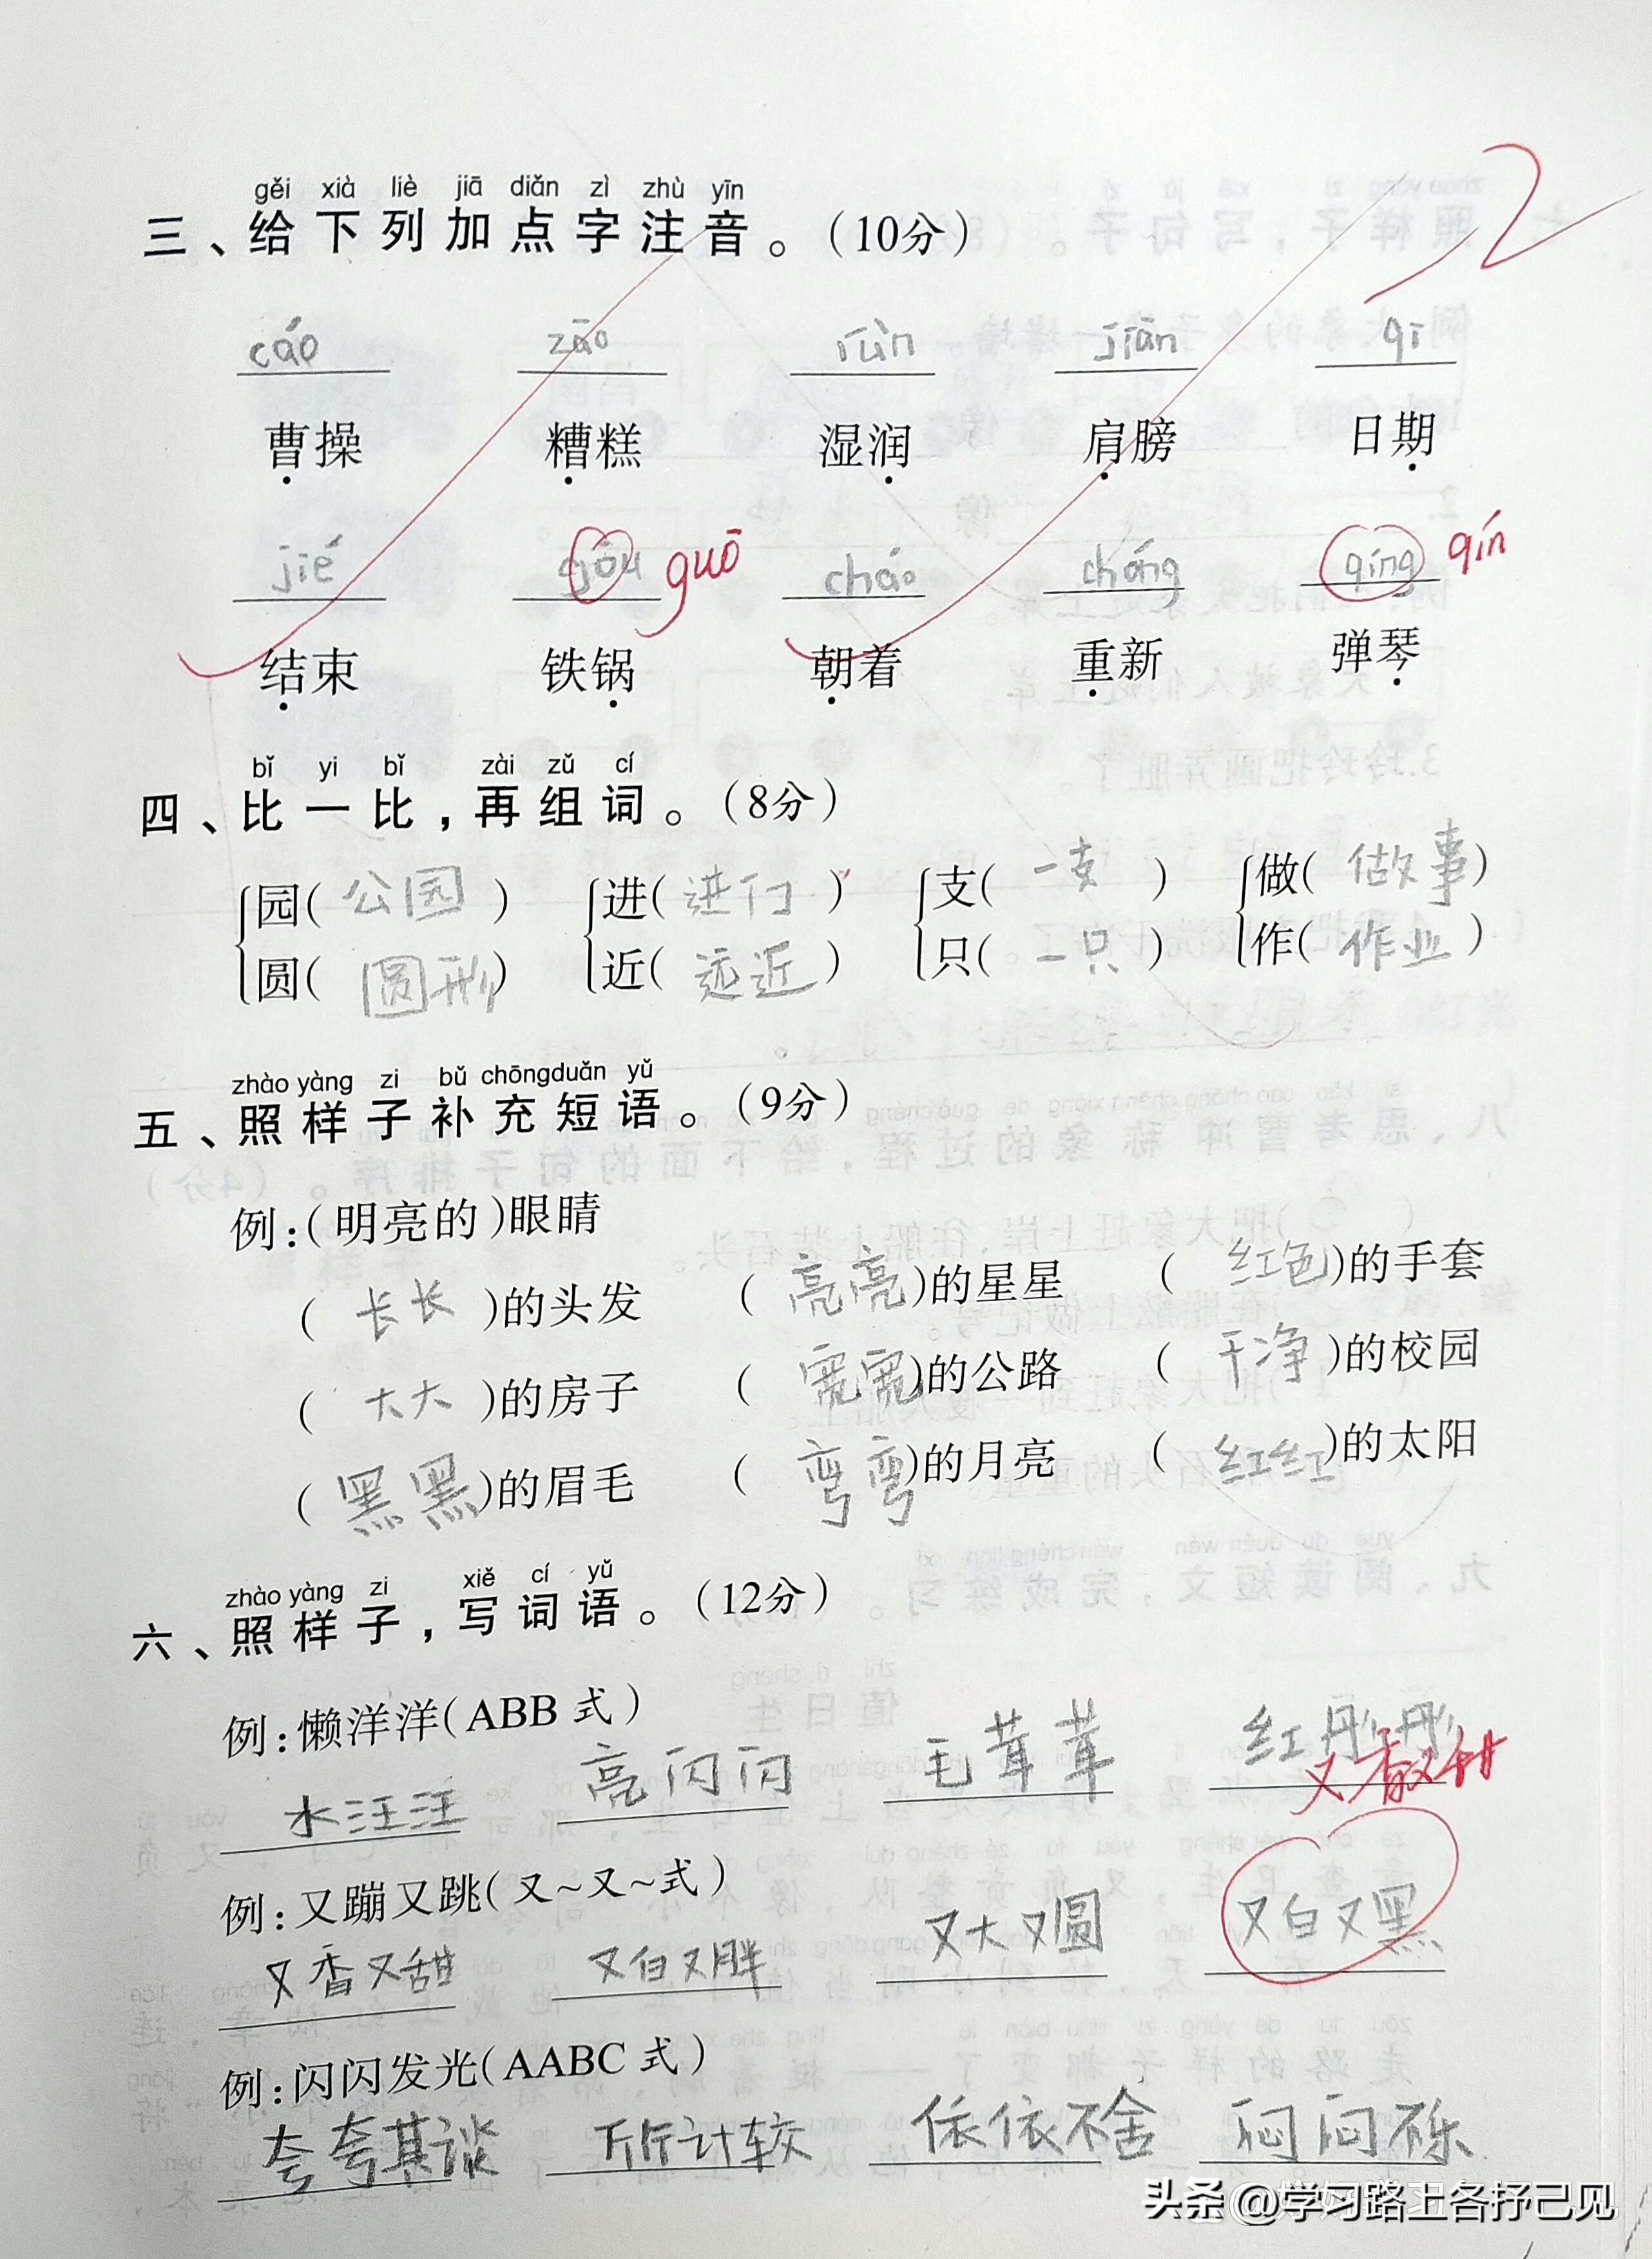 gěi xià liè jiā diǎn zì zhù yīn
三、给下列加点字注音。（10分）
cáo zāo rùn jiān qī
曹操 糟糕 湿润 肩膀 日期
jié gōu guō cháo chóng qíng qín
结束 铁锅 朝着 重新 弹琴
bǐ yi bǐ zài zǔ cí
四、比一比，再组词。（8分）
园（公园） 进（进门） 支（一支） 做（做事）
圆（圆形） 近（远近） 只（一只） 作（作业）
zhào yàng zi bǔ chōng duǎn yǔ
五、照样子补充短语。（9分）
例：（明亮的）眼睛
（长长）的头发 （亮亮）的星星 （红色）的手套
（大大）的房子 （宽宽）的公路 （干净）的校园
（黑黑）的眉毛 （弯弯）的月亮 （红红）的太阳
zhào yàng zi xiě cí yǔ
六、照样子，写词语。（12分）
例：懒洋洋（ABB式）
水汪汪 亮闪闪 毛茸茸 红彤彤
例：又蹦又跳（又~又~式）
又香又甜 又白又胖 又大又圆 又白又黑
例：闪闪发光（AABC式）
夸夸其谈 斤斤计较 依依不舍 闷闷不乐
头条 @学习路上各抒己见